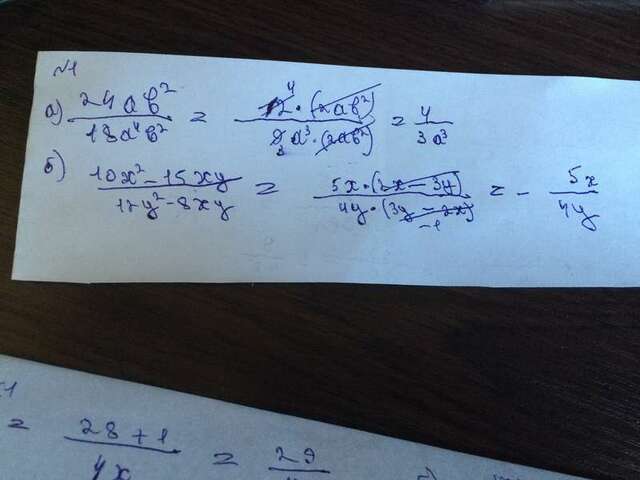 №1
а) 24ab² / 18a⁴b² = 12 4 · (2ab²) / 9 3 a³ · (2ab²) = 4 / 3a³
б) 10x² - 15xy / 12y² - 8xy = 5x · (2x - 3y) / 4y · (3y - 2x) -1 = - 5x / 4y
= 28 + 1 / 4x = 29